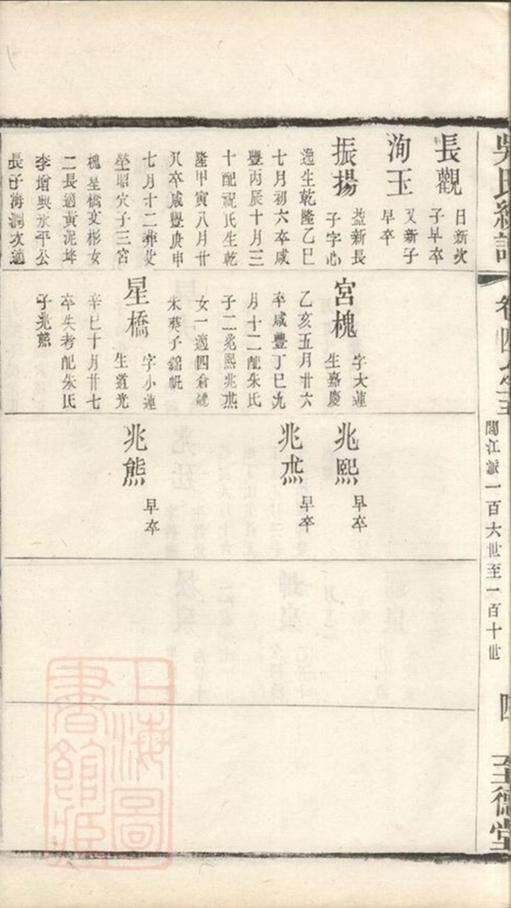 吳氏統譜
卷四
閩江派一百六世至一百十世
四
至德堂
長觀
日新次
子早卒
洵玉
又新子
早卒
振揚
益新長
子字心
逸生乾隆乙巳
七月初六卒咸
豐丙辰十月三
十配祝氏生乾
隆甲寅八月廿
八卒咸豐庚申
七月十二葬
塋昭穴子三宮
槐星橋文彬女
二長適黃泥埄
李增興水平公
長子海潤次適
宮槐
字大蓮
生嘉慶
乙亥五月廿六
卒咸豐丁巳九
月十二配朱氏
子二兆熙兆
女一適四倉
朱葵子錦
星橋
字小蓮
生道光
辛巳十月廿七
卒失考配朱氏
子兆熊
兆熙
早卒
兆
早卒
兆熊
早卒
上海圖
書館